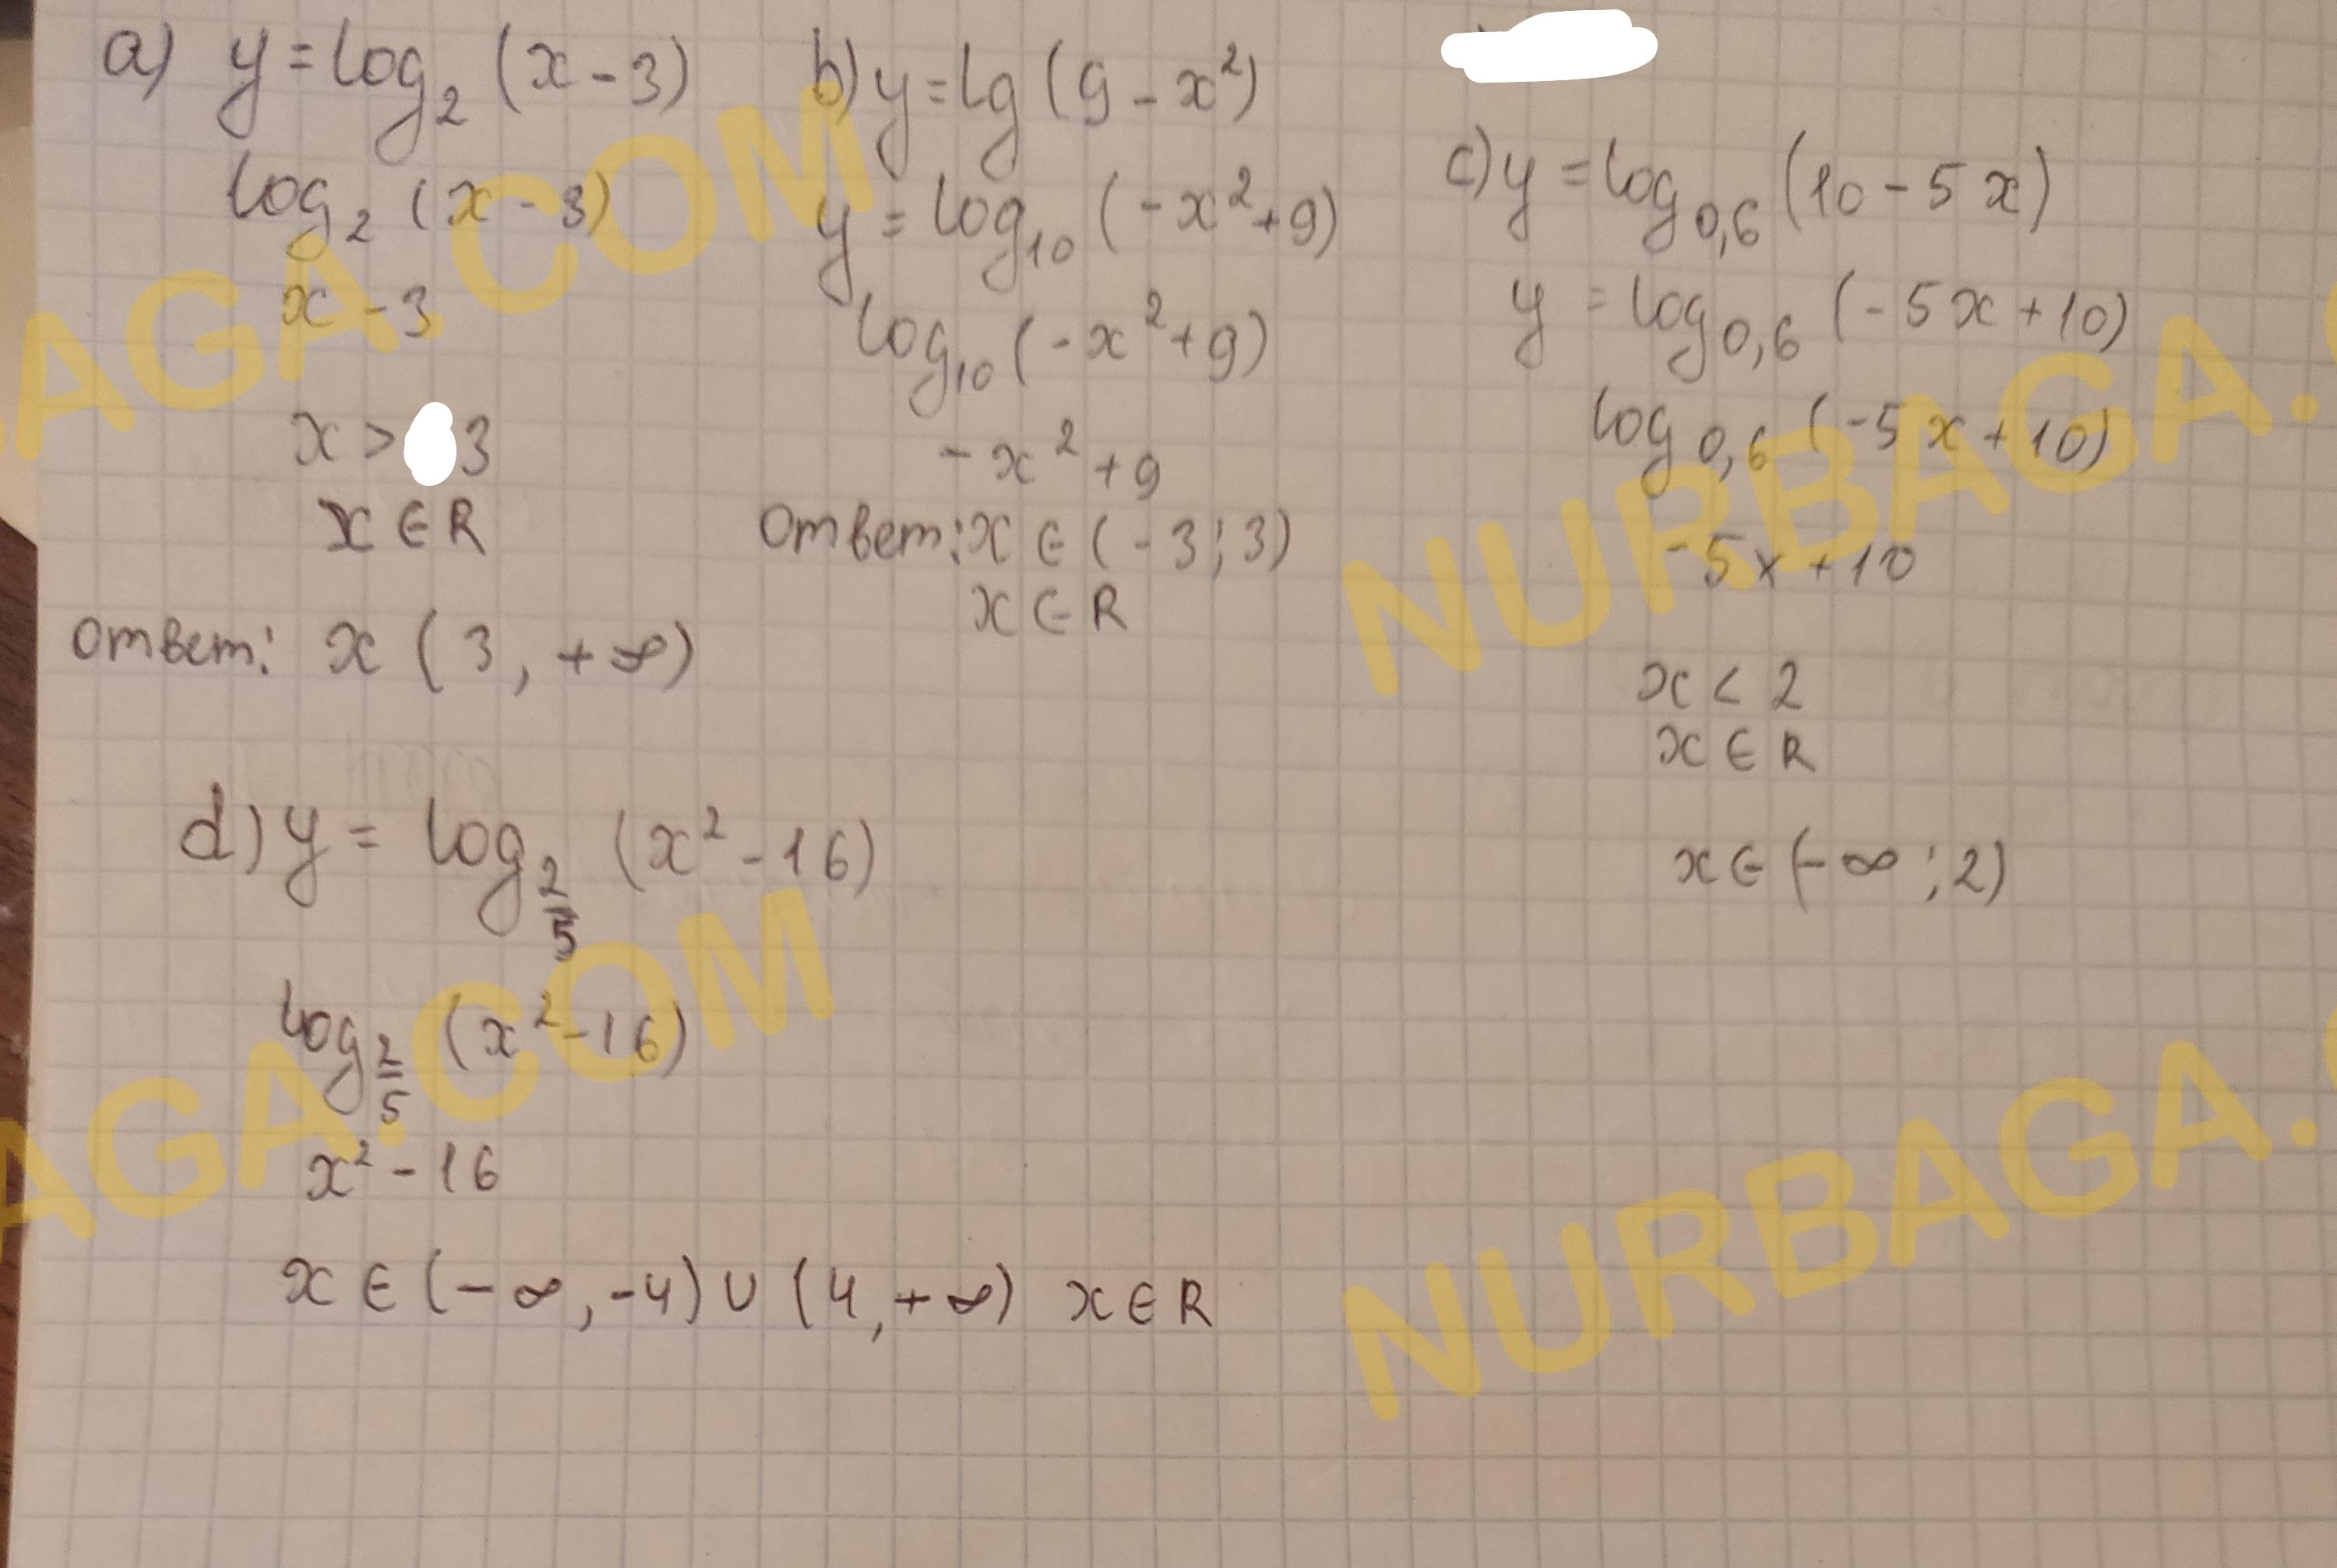 a) y = log₂ (x - 3)
log₂ (x - 3)
x - 3
x > 3
x ∈ R
Ответ: x (3, +∞)
b) y = lg (9 - x²)
y = log₁₀ (-x² + 9)
log₁₀ (-x² + 9)
-x² + 9
Ответ: x ∈ (-3; 3)
x ∈ R
c) y = log₀,₆ (10 - 5x)
y = log₀,₆ (-5x + 10)
log₀,₆ (-5x + 10)
-5x + 10
x < 2
x ∈ R
x ∈ (-∞; 2)
d) y = log_{2/5} (x² - 16)
log_{2/5} (x² - 16)
x² - 16
x ∈ (-∞, -4) ∪ (4, +∞) x ∈ R
BAGA.COM
NURBAGA.
AGA.COM
NURBAGA.